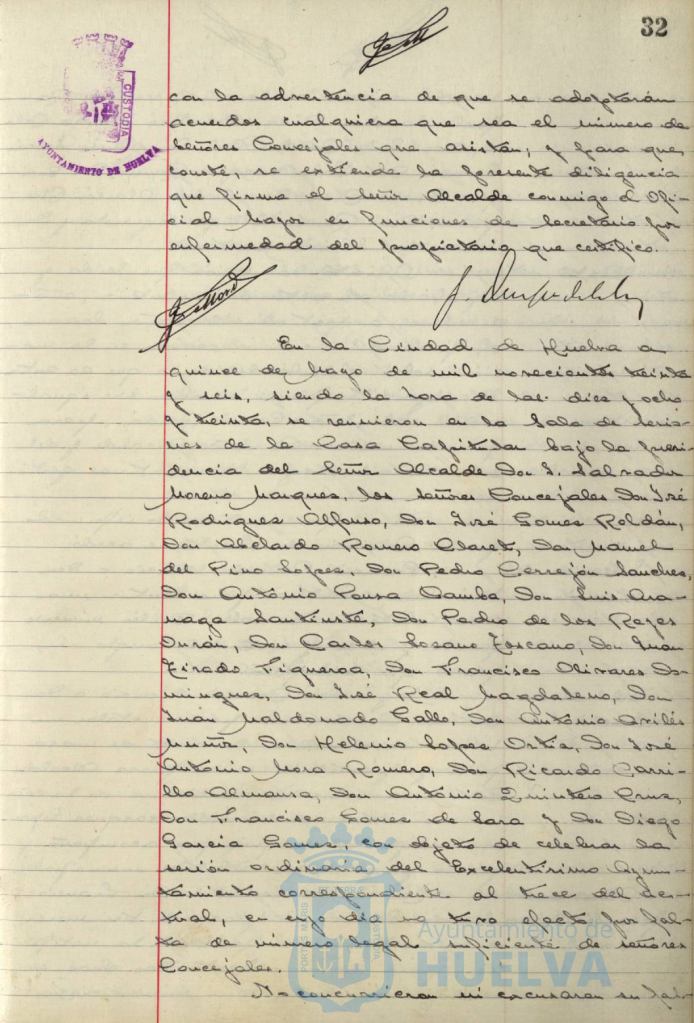 32
CUSTODIA
AYUNTAMIENTO DE HUELVA
con la advertencia de que se adoptarán
acuerdos cualquiera que sea el número de
Señores Concejales que asistan; y para que
conste, se extiende la presente diligencia
que firma el Señor Alcalde conmigo el Ofi-
cial Mayor en funciones de Secretario por
enfermedad del propietario, que certifico.
En la Ciudad de Huelva a
quince de Mayo de mil novecientos treinta
y seis, siendo la hora de las diez y ocho
y treinta, se reunieron en la Sala de Sesio-
nes de la Casa Capitular bajo la presi-
dencia del Señor Alcalde Don S. Salvador
Moreno Marques, los Señores Concejales Don José
Rodrigues Alfonso, Don José Gomes Roldán,
Don Abelardo Romero Claret, Don Manuel
del Pino Lopes, Don Pedro Cerrejón Sanches,
Don António Ponsa Gamba, Don Luis Ara-
naga Santiusté, Don Pedro de los Reyes
Durán, Don Carlos Losano Toscano, Don Juan
Tirado Figueroa, Don Francisco Olivares Do-
mingues, Don José Real Magdaleno, Don
Juan Maldonado Gallo, Don António Avilés
Muñiz, Don Helenio Lopes Ortiz, Don José
António Mora Romero, Don Ricardo Carri-
llo Almansa, Don António Quintero Crus,
Don Francisco Gomes de Lara y Don Diego
García Gomes, con objeto de celebrar la
sesión ordinaria del Excelentísimo Ayun-
tamiento correspondiente al trece del ac-
tual, en cuyo dia no tuvo efecto por fal-
ta de número legal suficiente de señores
Concejales.
No concurrieron ni excusaron su fal-
Ayuntamiento de
HUELVA